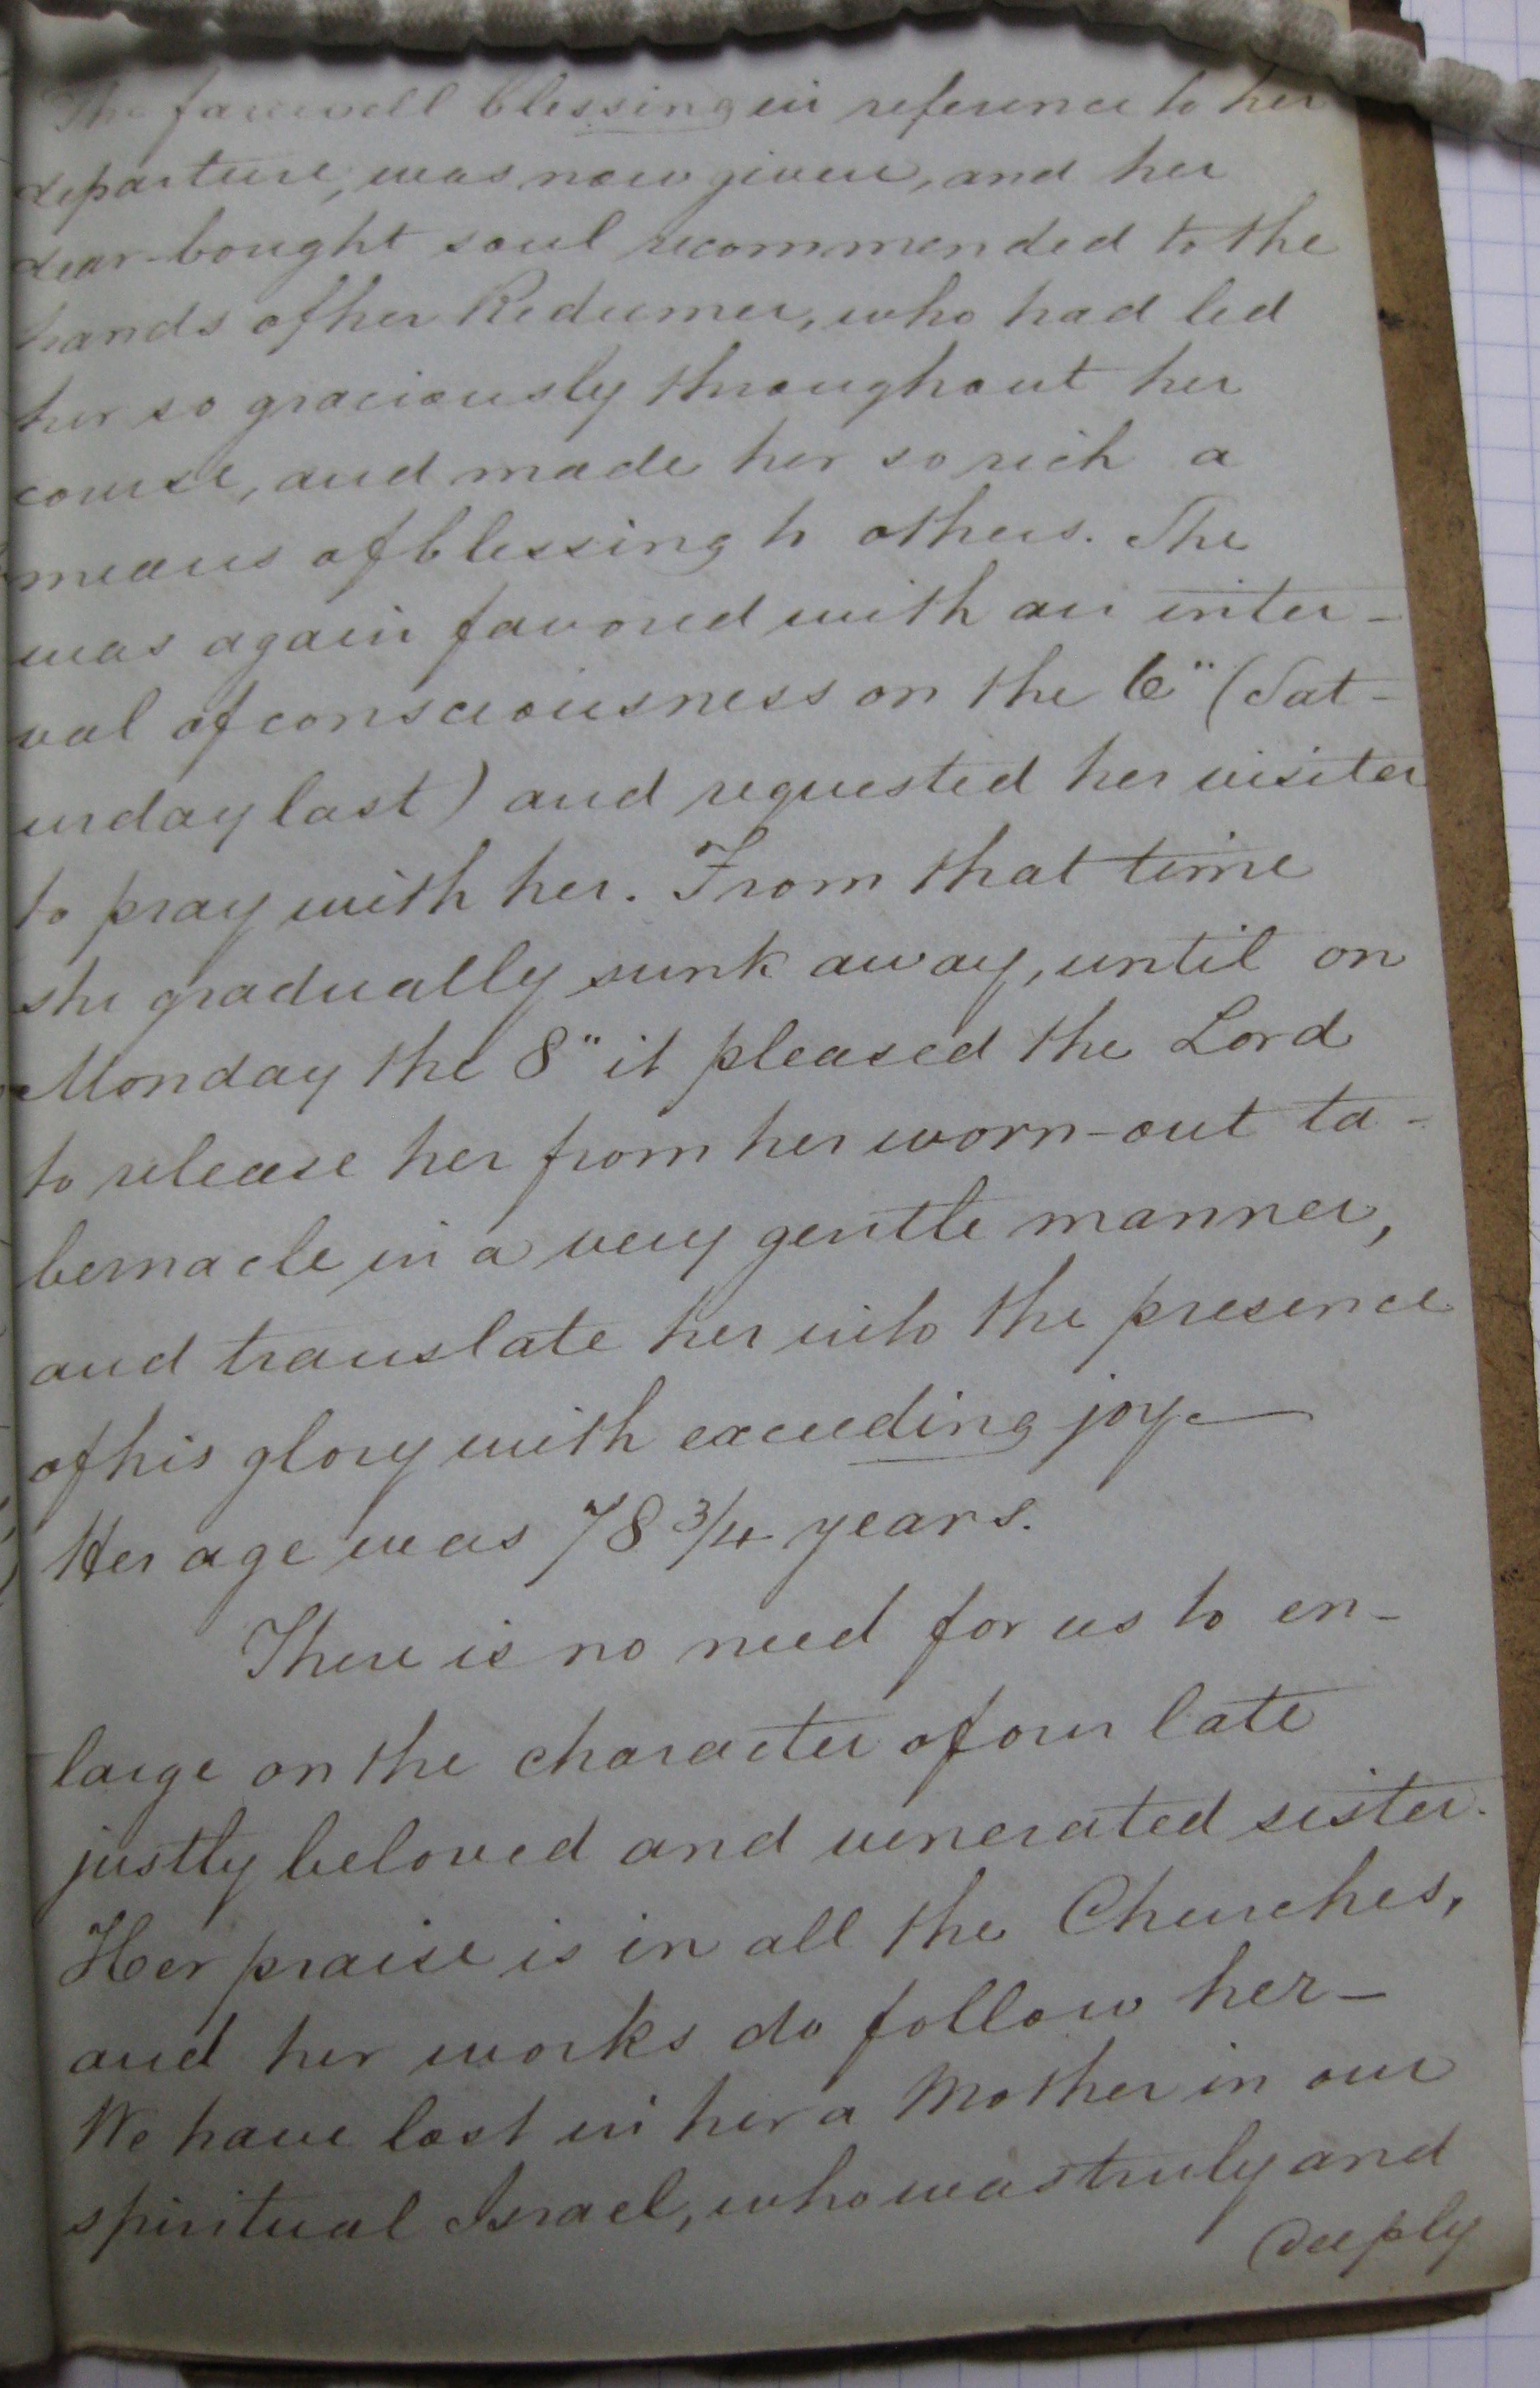 The farewell blessing in reference to her
departure, was now given, and her
dear-bought soul recommended to the
hands of her Redeemer, who had led
her so graciously throughout her
course, and made her so rich a
means of blessing to others. She
was again favored with an inter-
val of consciousness on the 6" (Sat-
urday last) and requested her visiter
to pray with her. From that time
she gradually sunk away, until on
Monday the 8" it pleased the Lord
to release her from her worn-out ta-
bernacle in a very gentle manner,
and translate her into the presence
of his glory with exceeding joy—
Her age was 78 3/4 years.
There is no need for us to en-
large on the character of our late
justly beloved and venerated sister.
Her praise is in all the Churches,
and her works do follow her—
We have lost in her a Mother in our
spiritual Israel, who was truly and
deeply